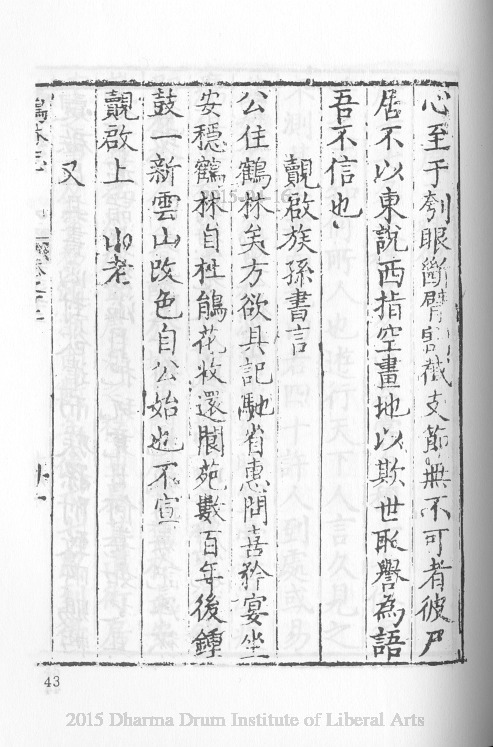 心至于刳眼斷臂割截支節無不可者彼尸
居不以東說西指空畫地以欺世取譽為語
吾不信也
覿啟族孫書言
公住鶴林矣方欲具記馳省惠問喜矜宴坐
安穩鶴林自杜鵑花妝還閬苑數百年後鍾
鼓一新雲山改色自公始也不宣
覿啟上 老
又
43
2015 Dharma Drum Institute of Liberal Arts